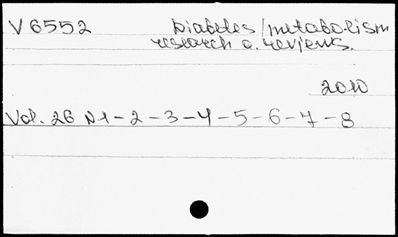 V 6552 Diabetes/metabolism
research a. reviews.
2010
Vol. 26 N1-2-3-4-5-6-7-8